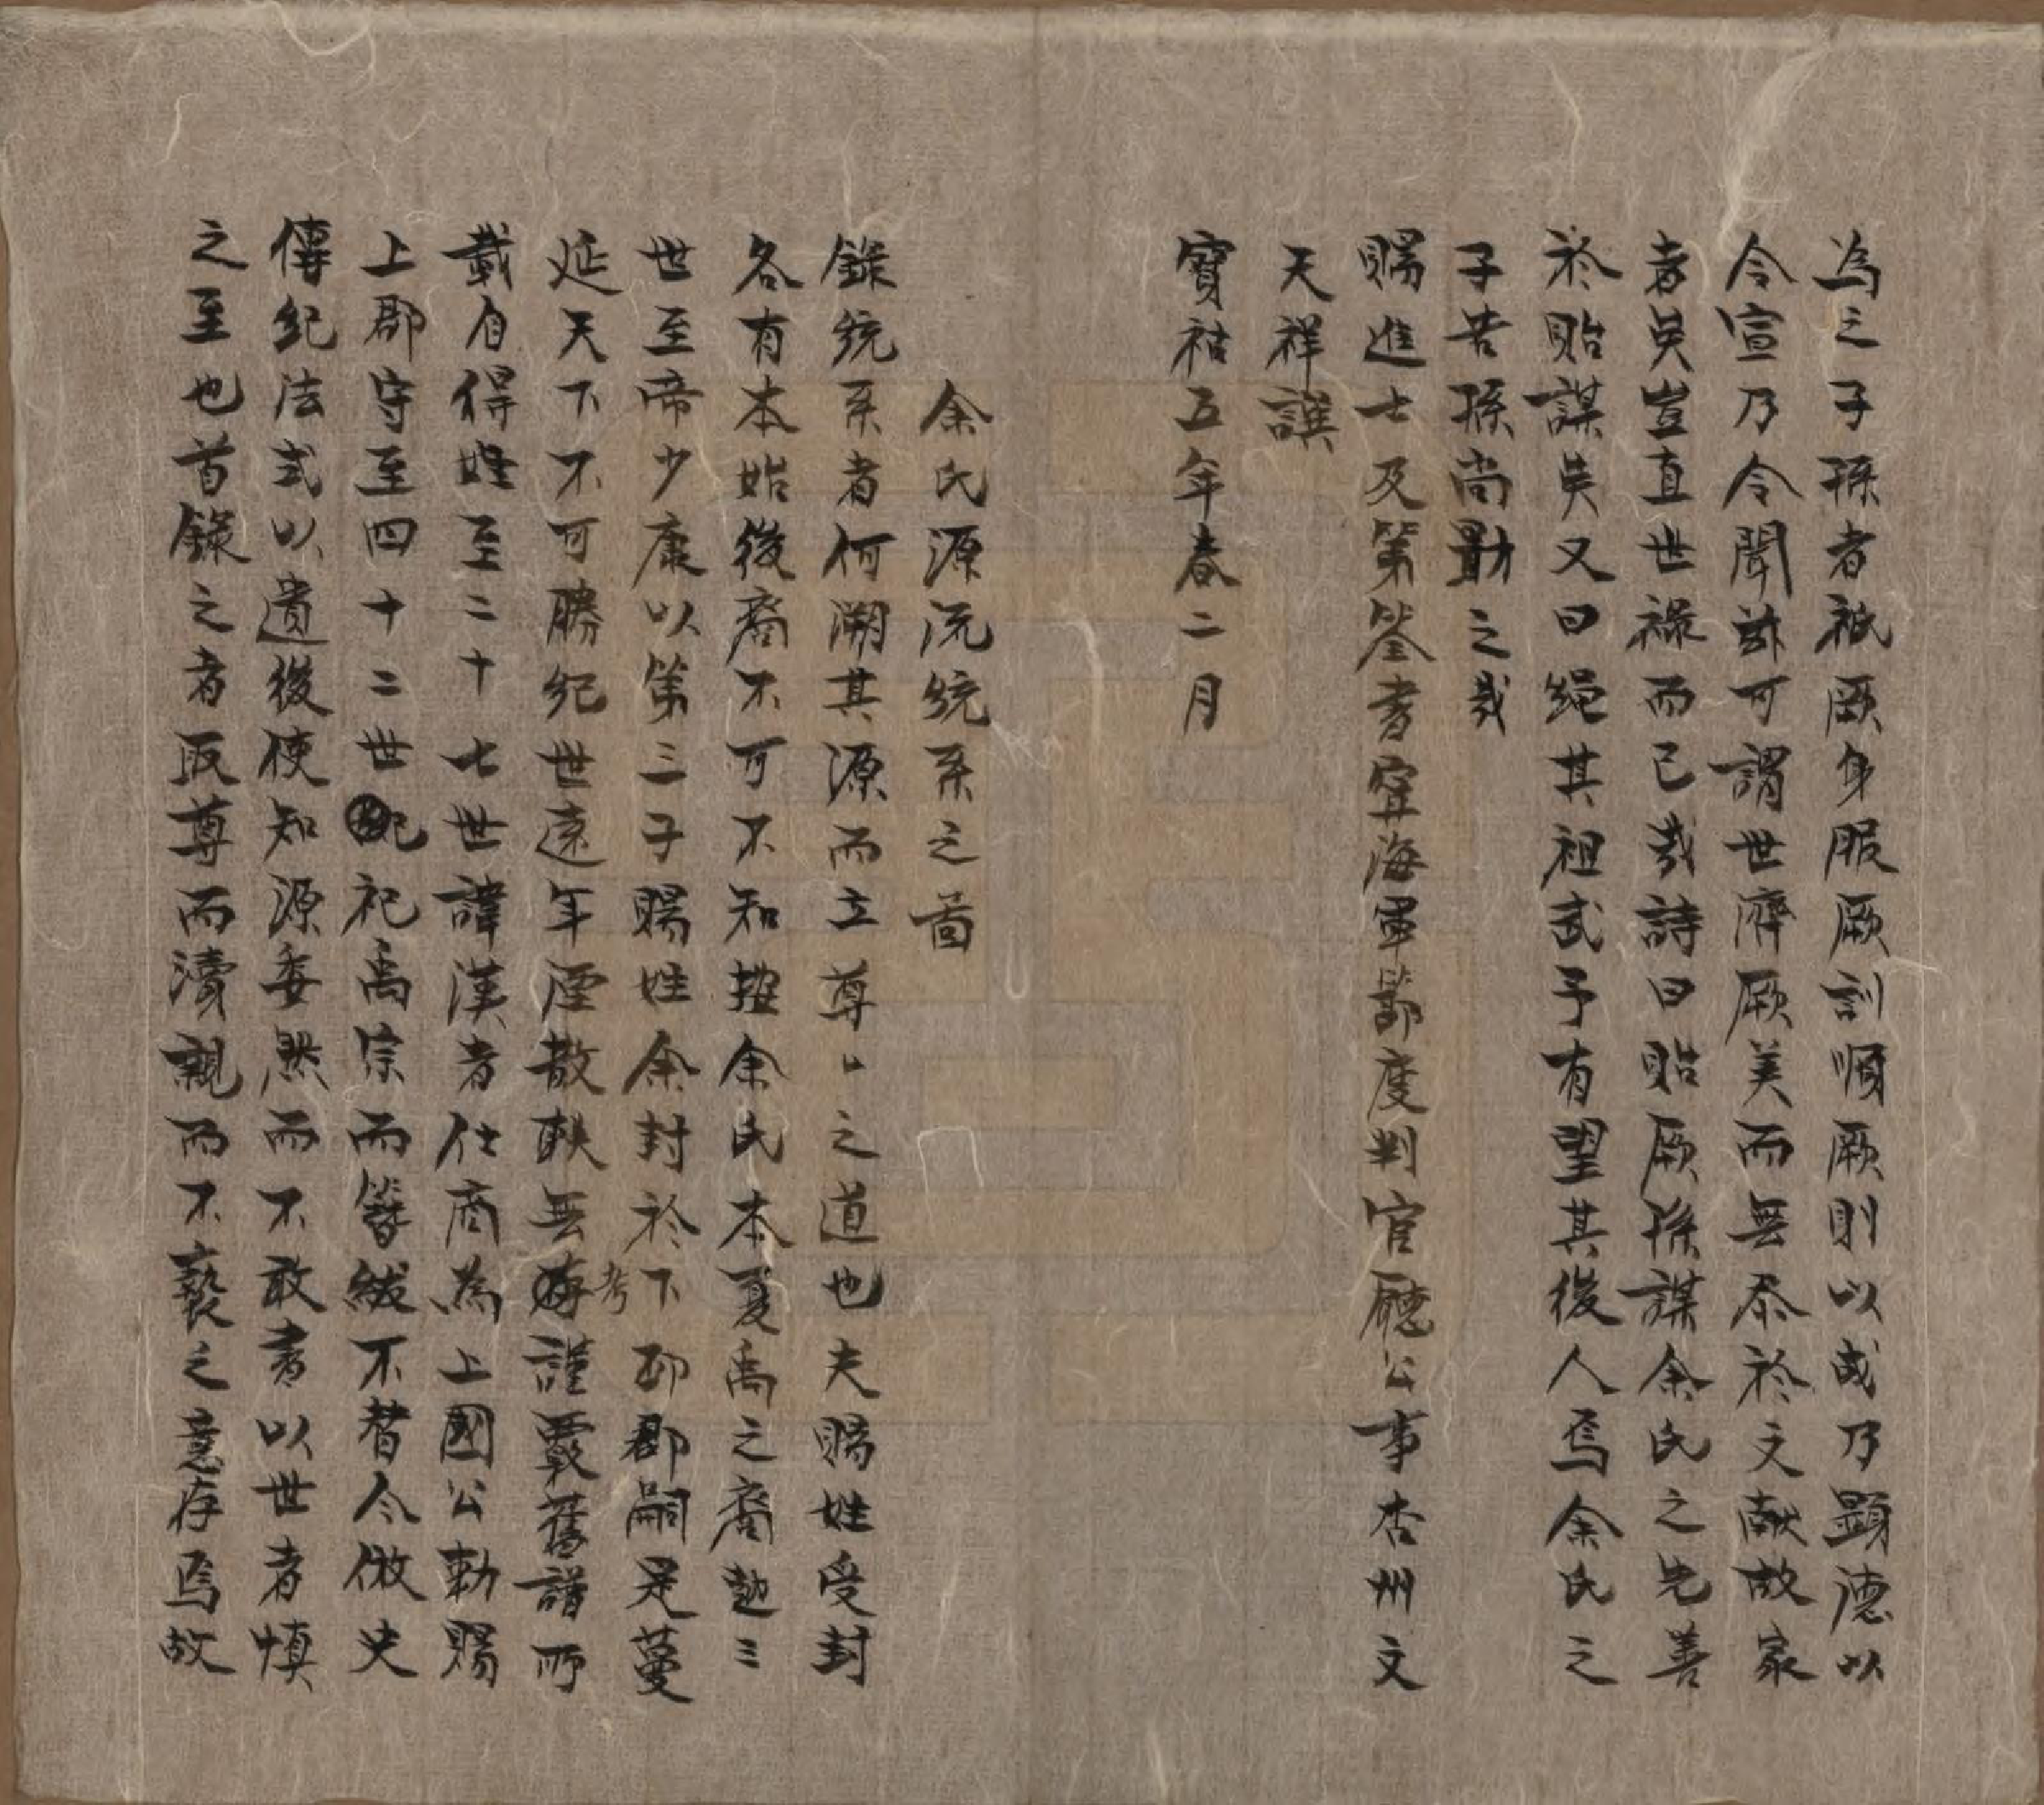 為之子孫者祇厥身服厥訓順厥則以成乃顯德以
令宣乃令聞玆可謂世濟厥美而無忝於文献故家
者矣豈直世祿而已哉詩曰貽厥孫謀余氏之先善
於貽謀矣又曰繩其祖武予有望其後人焉余氏之
子若孫尚勖之哉
賜進士及第簽書寧海軍節度判官廳公事吉州文
天祥譔
寶祐五年春二月
余氏源流統系之啚
錄統系者何溯其源而立尊〻之道也夫賜姓受封
各有本始後裔不可不知攷余氏本夏禹之裔越三
世至帝少康以第三子賜姓余封於下邳郡嗣是蔓
延天下不可勝紀世遠年湮散軼無考謹覈舊譜所
載自得姓至二十七世諱漢者仕商為上國公勅賜
上郡守至四十二世杞祀禹宗而簪紱不替今倣史
傳紀法式以遺後使知源委然而不敢書以世者慎
之至也首錄之者取尊而瀆親而不褻之意存焉故